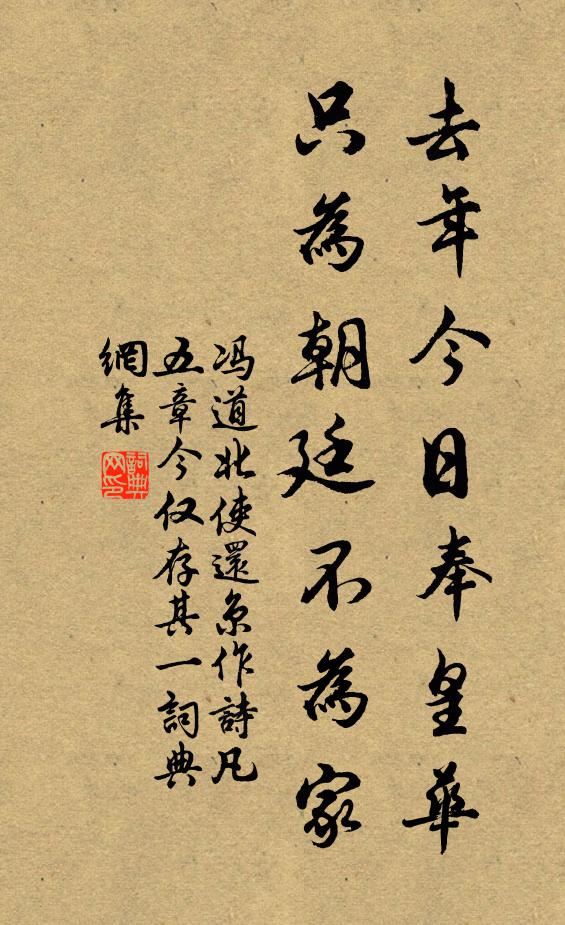 去年今日奉皇華
只為朝廷不為家
冯道北使還京作詩凡
五章今仅存其一詞典
網集
詞典網印